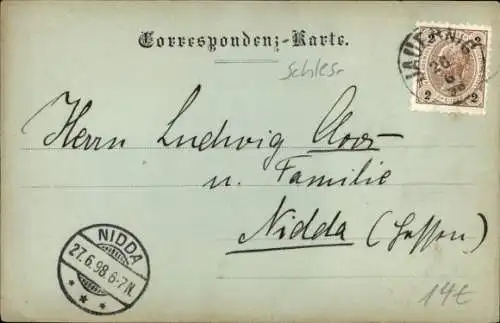 Correspondenz-Karte.
Schles.
JAUERNIG
2 2
26
6
98
2 2
Herrn Ludwig Cloos
u. Familie
Nidda (Hessen)
NIDDA
27.6.98.6-7.N.
* * *
14€